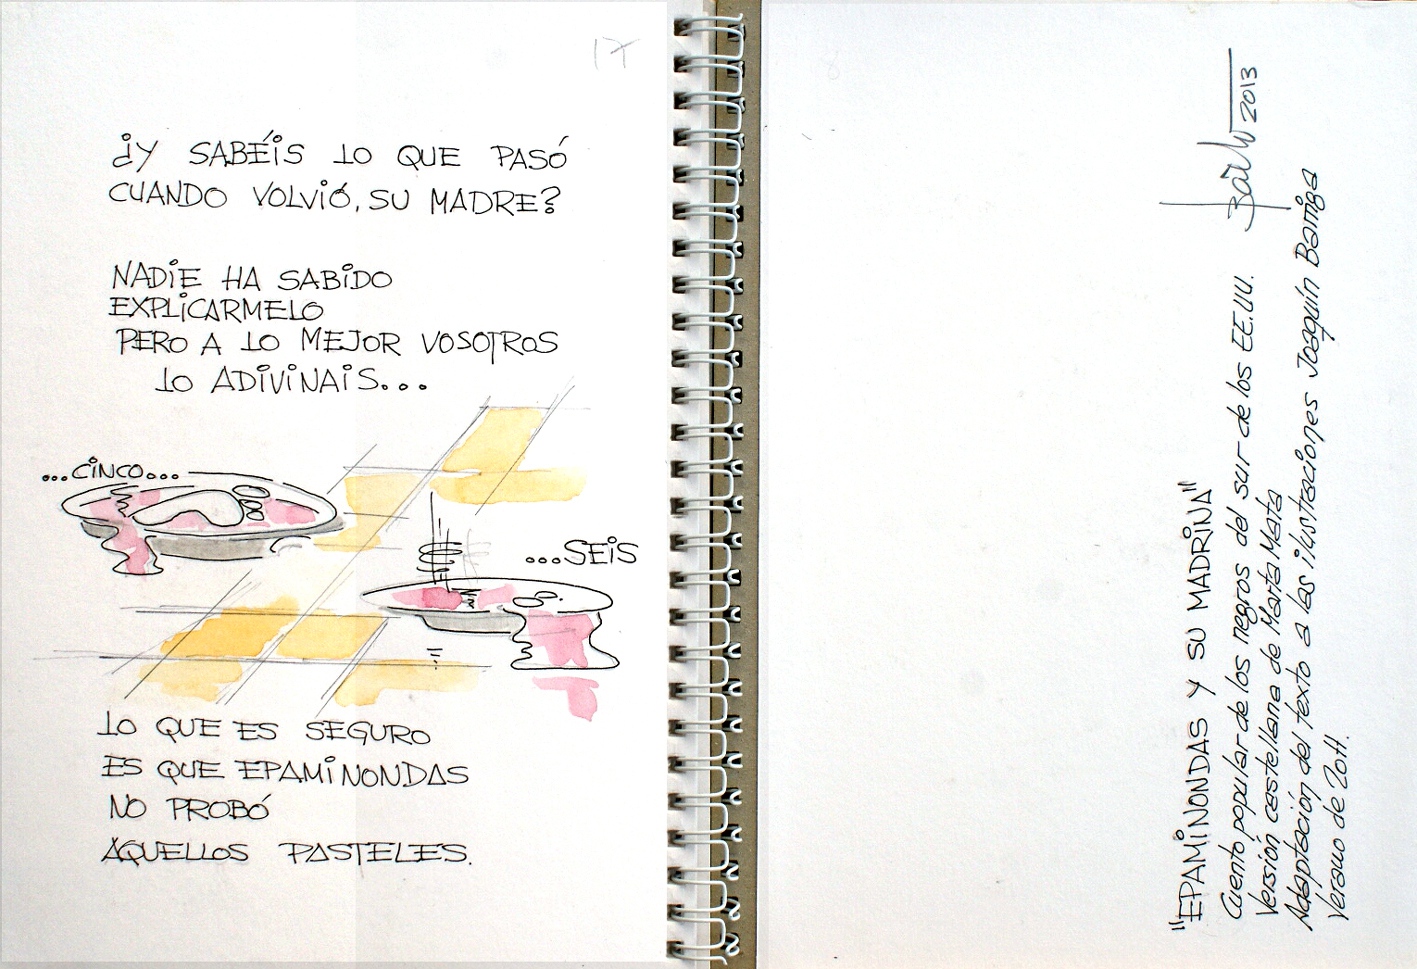 17
¿Y SABÉIS LO QUE PASÓ
CUANDO VOLVIÓ, SU MADRE?
NADIE HA SABIDO
EXPLICARMELO
PERO A LO MEJOR VOSOTROS
LO ADIVINAIS...
...CINCO...
...SEIS
LO QUE ES SEGURO
ES QUE EPAMINONDAS
NO PROBÓ
AQUELLOS PASTELES.
"EPAMINONDAS Y SU MADRINA"
Cuento popular de los negros del sur de los EE.UU.
Versión castellana de Marta Mata
Adaptación del texto a las ilustraciones Joaquín Barriga
Verano de 2011.
2013